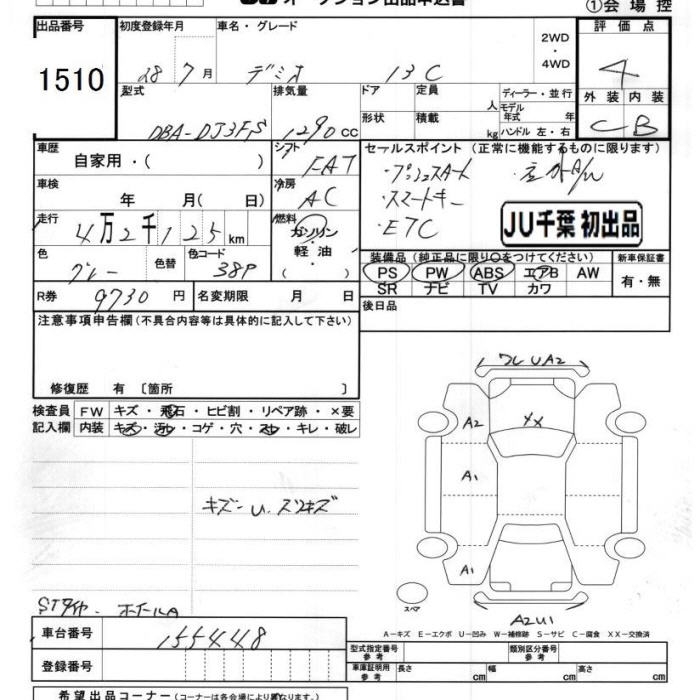 オークション出品申込書
①会場控
出品番号 初度登録年月 車名・グレード 2WD・4WD 評価点
1510 28 7月 デミオ 13C 4
型式 排気量 ドア 定員 人 ディーラー・並行 外装 内装
モデル年式 年
DBA-DJ3FS 1290cc 形状 積載 kg ハンドル 左・右 C B
車歴 自家用・( ) シフト FAT セールスポイント (正常に機能するものに限ります)
・プッシュスタート
車検 年 月( 日) 冷房 AC ・スマートキー
・ETC
JU千葉 初出品
走行 4万2千125km 燃料 ガソリン・軽油・( )
装備品(純正品に限り○をつけてください) 新車保証書
色 グレー 色替 色コード 38P PS PW ABS エアB AW 有・無
SR ナビ TV カワ
R券 9730円 名変期限 月 日 後日品
注意事項申告欄(不具合内容等は具体的に記入して下さい)
修復歴 有 〔箇所 〕
検査員 FW キズ・飛石・ヒビ割・リペア跡・×要
記入欄 内装 キズ・汚レ・コゲ・穴・スレ・キレ・破レ
ワレUA2
A2 XX
A1
キズ U. スリキズ
A1
スペア
STタイヤ
A2U1
A-キズ E-エクボ U-凹み W-補修跡 S-サビ C-腐食 XX-交換済
車台番号 155448
型式指定番号 参考 類別区分番号 参考
登録番号 車庫証明用 参考 長さ cm 幅 cm 高さ cm
希望出品コーナー(コーナーは各会場により異なります。)